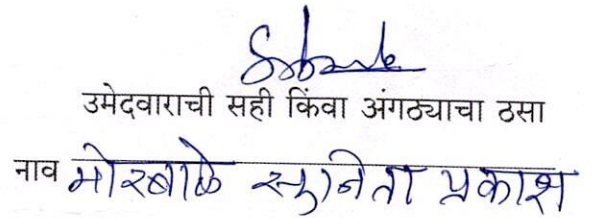 उमेदवाराची सही किंवा अंगठ्याचा ठसा
नाव मोरबाळे सुनिता प्रकाश